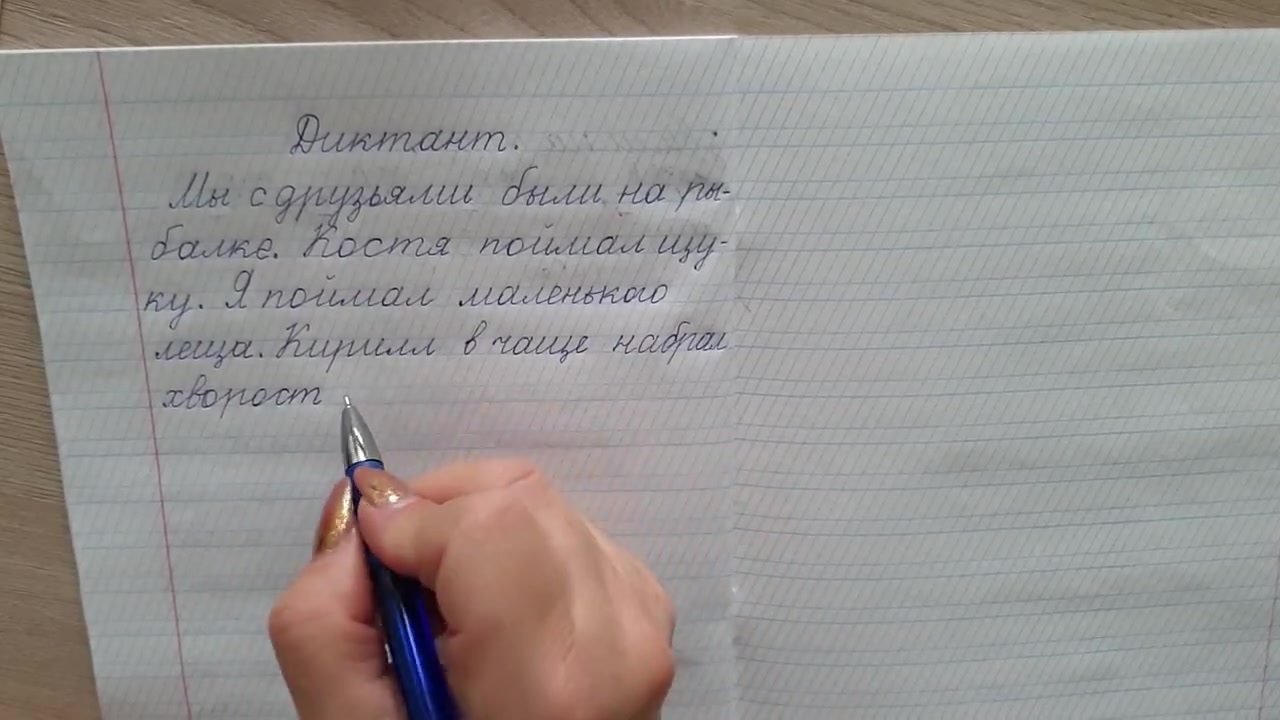 Диктант.
Мы с друзьями были на ры-
балке. Костя поймал щу-
ку. Я поймал маленького
леща. Кирилл в чаще набрал
хворост